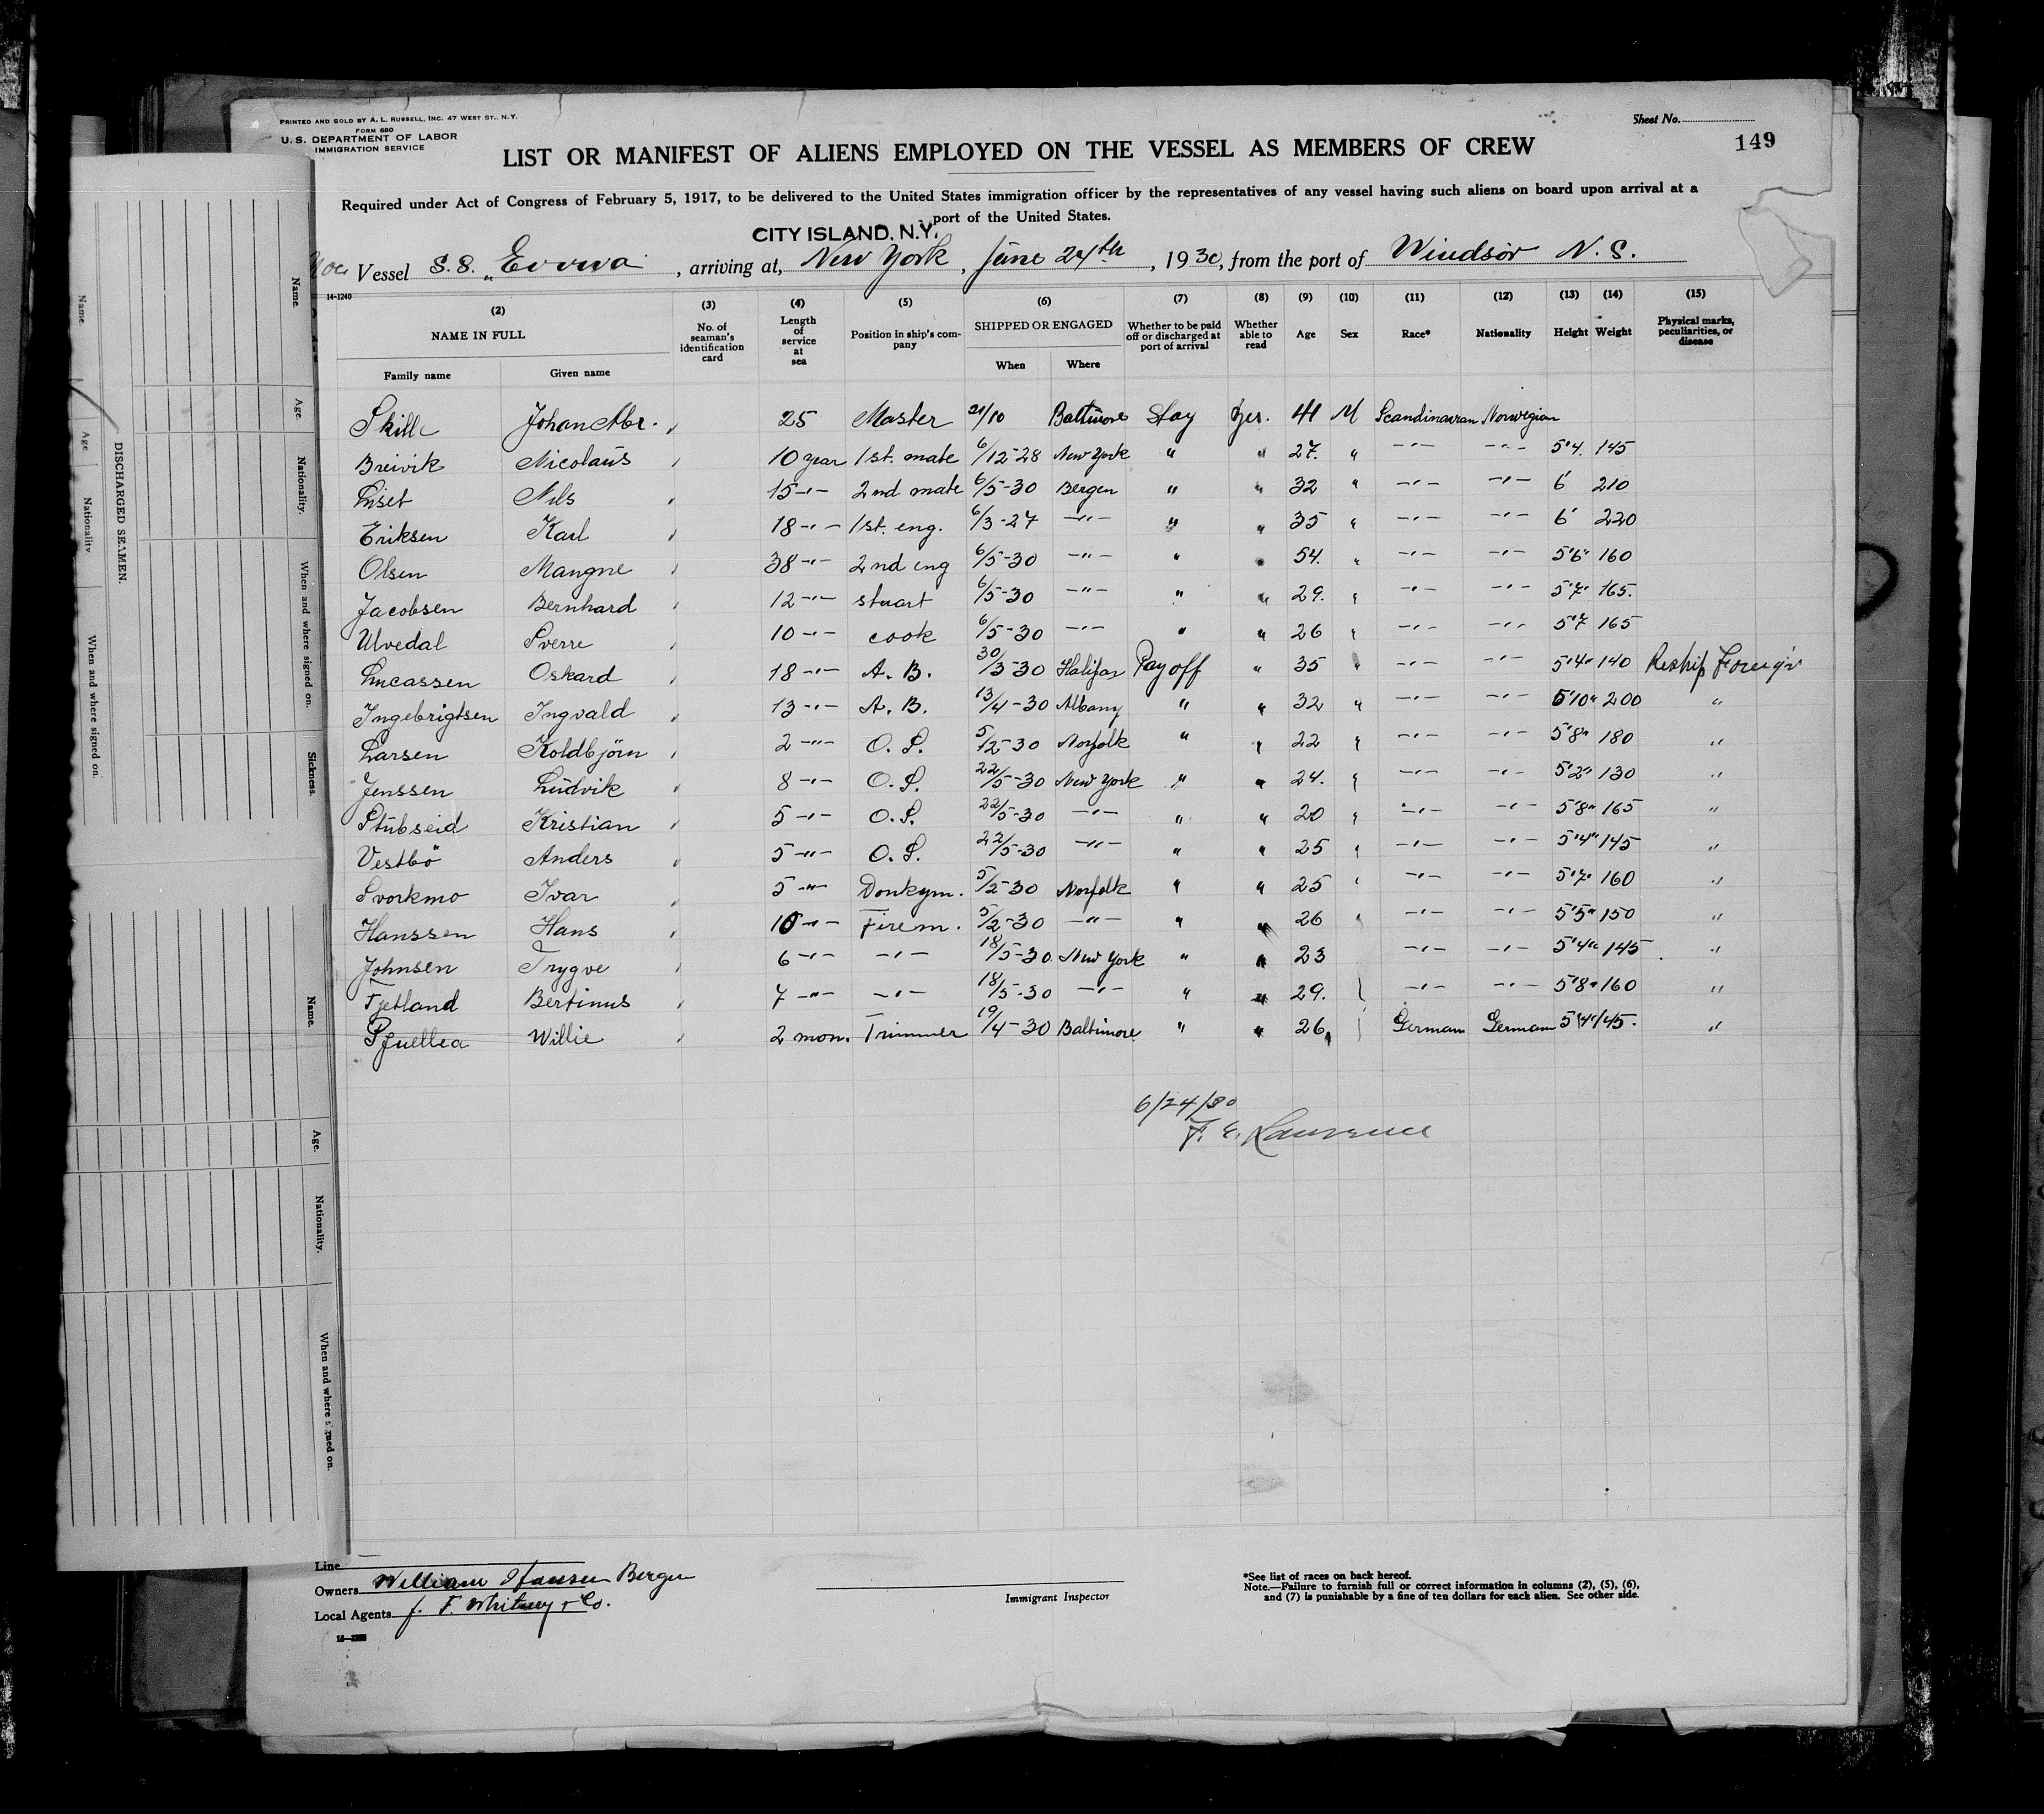 PRINTED AND SOLD BY A. L. RUSSELL, INC. 47 WEST ST., N.Y.
FORM 680
U. S. DEPARTMENT OF LABOR
IMMIGRATION SERVICE
Sheet No.
149
LIST OR MANIFEST OF ALIENS EMPLOYED ON THE VESSEL AS MEMBERS OF CREW
Required under Act of Congress of February 5, 1917, to be delivered to the United States immigration officer by the representatives of any vessel having such aliens on board upon arrival at a
port of the United States.
CITY ISLAND, N.Y.
Vessel S.S. , arriving at, New York, June 24th, 1930, from the port of Windsor N.S.
14-1240
(2) (3) (4) (5) (6) (7) (8) (9) (10) (11) (12) (13) (14) (15)
NAME IN FULL No. of seaman's identification card Length of service at sea Position in ship's company SHIPPED OR ENGAGED Whether to be paid off or discharged at port of arrival Whether able to read Age Sex Race* Nationality Height Weight Physical marks, peculiarities, or disease
Family name Given name When Where
Johan Abr. 25 Master 21/10 Baltimore Stay Yes. 41 M Scandinavian Norwegian
Breivik Nicolaus 10 year 1st. mate 6/12-28 New York " " 27. " -"- -"- 5'4. 145
Liset Nils 15 -"- 2nd mate 6/5-30 Bergen " " 32 " -"- -"- 6' 210
Eriksen Karl 18 -"- 1st. eng. 6/3-27 -"- " " 35 " -"- -"- 6' 220
Olsen Mangne 38 -"- 2nd eng 6/5-30 -"- " " 54. " -"- -"- 5'6" 160
Jacobsen Bernhard 12 -"- stuart 6/5-30 -"- " " 29. " -"- -"- 5'7" 165.
Ulvedal Sverre 10 -"- cook 6/5-30 -"- " " 26 " -"- -"- 5'7 165
Lucassen Oskard 18 -"- A. B. 30/3-30 Halifax Pay off " 35 " -"- -"- 5'4" 140 Reship Foreign
Ingebrigtsen Ingvald 13 -"- A. B. 13/4-30 Albany " " 32 " -"- -"- 5'10" 200 "
Larsen Koldbjörn 2 -"- O. S. 5/2-30 Norfolk " " 22 " -"- -"- 5'8" 180 "
Jenssen Ludvik 8 -"- O. S. 22/5-30 New York " " 24. " -"- -"- 5'2" 130 "
Stubseid Kristian 5 -"- O. S. 22/5-30 -"- " " 20 " -"- -"- 5'8" 165 "
Vestbö Anders 5 -"- O. S. 22/5-30 -"- " " 25 " -"- -"- 5'4" 145 "
Svorkmo Ivar 5 -"- Donkym. 5/2-30 Norfolk " " 25 " -"- -"- 5'7" 160 "
Hanssen Hans 10 -"- Firem. 5/2-30 -"- " " 26 " -"- -"- 5'5" 150 "
Johnsen Trygve 6 -"- -"- 18/5-30. New York " " 23 -"- -"- 5'4" 145 "
Tjetland Bertinus 7 -"- -"- 18/5-30 -"- " " 29. -"- -"- 5'8" 160 "
Willie 2 mon. Trimmer 19/4-30 Baltimore " " 26 German German 5'4" 145. "
6/24/30
Lawrence
Line
Owners William Hansen Bergen
Local Agents J. F. Whitney & Co.
Immigrant Inspector
*See list of races on back hereof.
Note.—Failure to furnish full or correct information in columns (2), (5), (6),
and (7) is punishable by a fine of ten dollars for each alien. See other side.
DISCHARGED SEAMEN.
Name.
Age.
Nationality.
When and where signed on.
Sickness.
Name.
Age.
Nationality.
When and where signed on.
Name.
Age.
Nationality.
When and where signed on.